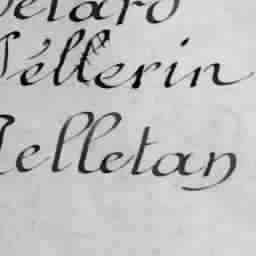 Pélard
Péllerin
Pelletan